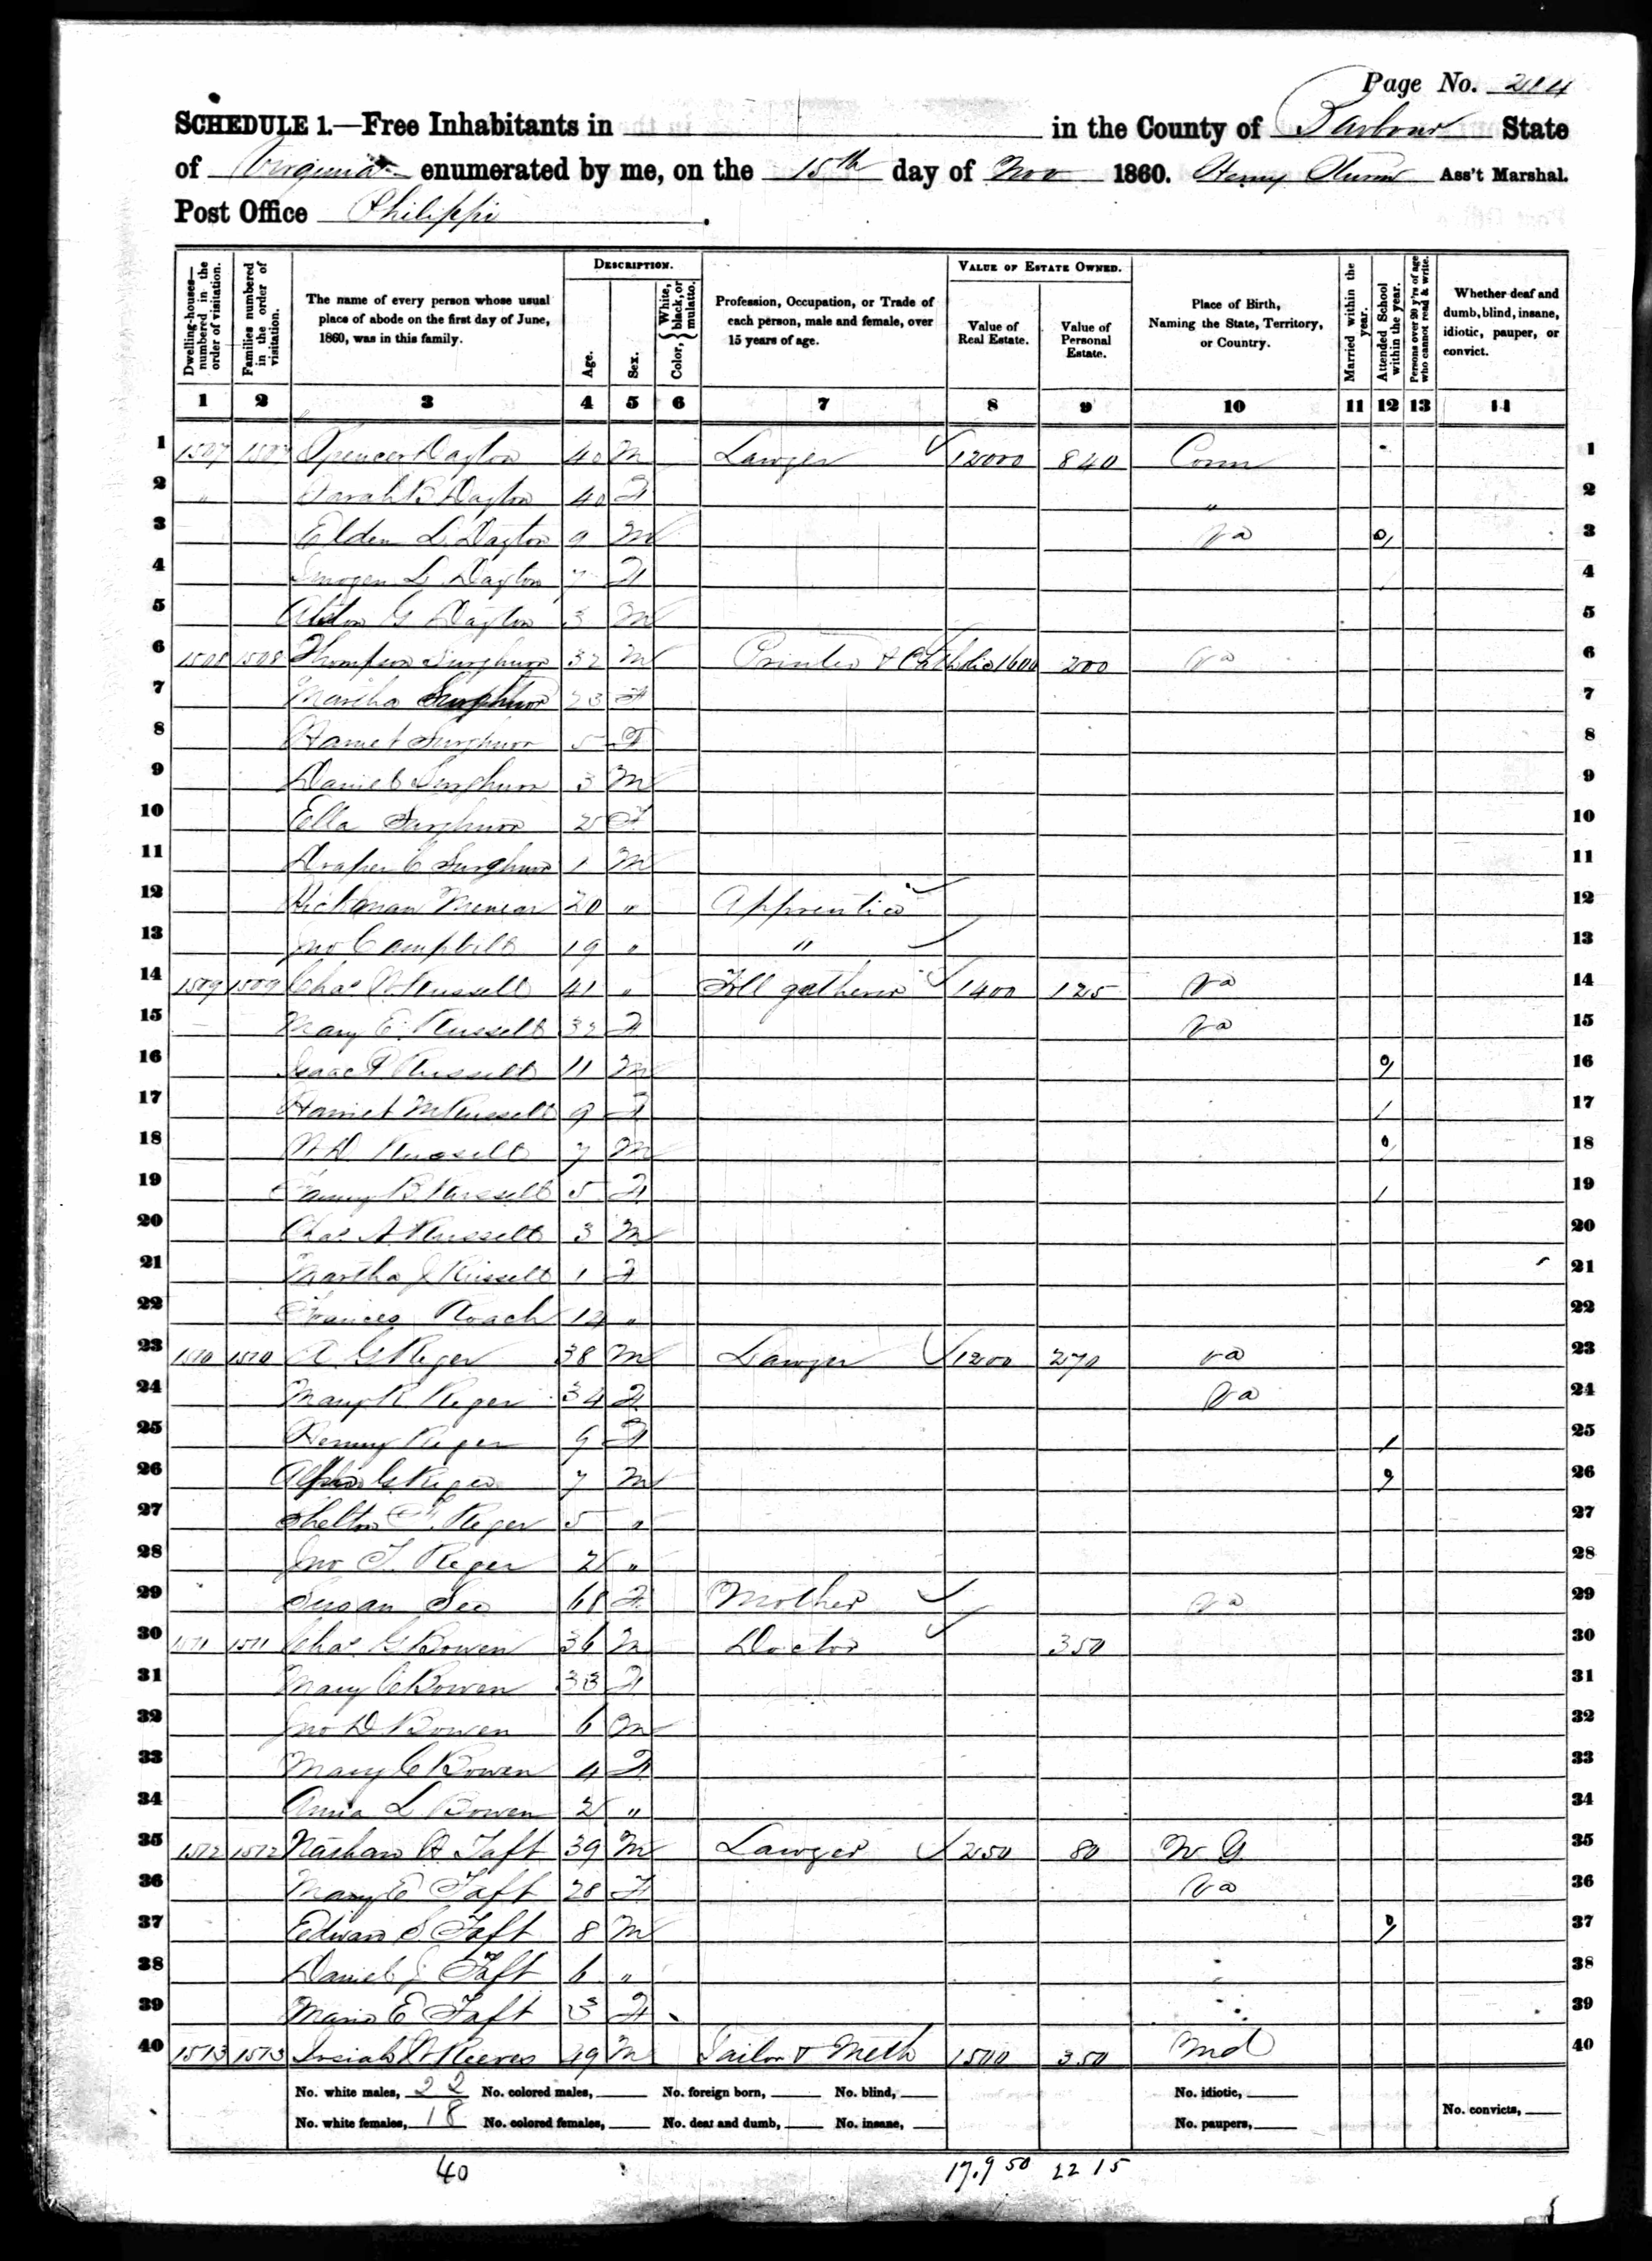 Page No. 214
SCHEDULE 1.—Free Inhabitants in in the County of Barbour State
of Virginia enumerated by me, on the 15th day of Nov 1860. Henry Ass't Marshal.
Post Office Philippi.
Dwelling-houses—numbered in the order of visitation.
Families numbered in the order of visitation.
The name of every person whose usual place of abode on the first day of June, 1860, was in this family.
DESCRIPTION.
Age.
Sex.
Color, { White, black, or mulatto.
Profession, Occupation, or Trade of each person, male and female, over 15 years of age.
VALUE OF ESTATE OWNED.
Value of Real Estate.
Value of Personal Estate.
Place of Birth, Naming the State, Territory, or Country.
Married within the year.
Attended School within the year.
Persons over 20 y'rs of age who cannot read & write.
Whether deaf and dumb, blind, insane, idiotic, pauper, or convict.
1 2 3 4 5 6 7 8 9 10 11 12 13 14
1 1507 1507 Spencer Dayton 40 M Lawyer 12000 840 Conn 1
2 " Sarah B Dayton 40 F " 2
3 Elden L. Dayton 9 M Va 3
4 Imogen L Dayton 7 F / 4
5 Alston G Dayton 3 M 5
6 1508 1508 Thompson Surghnor 32 M Printer & 1600 200 Va 6
7 Martha Surghnor 23 F 7
8 Harriet Surghnor 5 F 8
9 Daniel Surghnor 3 M 9
10 Ella Surghnor 2 F 10
11 Draper C Surghnor 1 M 11
12 Hickman 20 " Apprentice 12
13 Jno Campbell 19 " " 13
14 1509 1509 Chas Russell 41 " Toll gatherer 1400 125 Va 14
15 Mary E. Russell 32 F Va 15
16 Isaac P Russell 11 M 16
17 Harriet M Russell 9 F / 17
18 Russell 7 M 18
19 Fanny B Russell 5 F / 19
20 Chas A Russell 3 M 20
21 Martha J Russell 1 F 21
22 Frances Roach 14 " 22
23 1510 1510 A G Reger 38 M Lawyer 1200 270 Va 23
24 Mary R Reger 34 F Va 24
25 Reger 9 F / 25
26 G Reger 7 M 26
27 Shelton Reger 5 " 27
28 Jno T. Reger 2 " 28
29 Susan See 68 F Mother Va 29
30 1511 1511 Chas G Bowen 36 M Doctor 350 30
31 Mary C Bowen 33 F 31
32 Jno D Bowen 6 M 32
33 Mary C Bowen 4 F 33
34 Anna L Bowen 2 " 34
35 1512 1512 Nathan H Taft 39 M Lawyer 250 80 35
36 Mary E Taft 28 F Va 36
37 Edward S Taft 8 M 37
38 Daniel J Taft 6 " 38
39 Maria E Taft 3 F 39
40 1513 1513 Josiah Reeves 49 M Tailor & Meth 1500 350 Md 40
No. white males, 22 No. colored males, No. foreign born, No. blind, No. idiotic,
No. white females, 18 No. colored females, No. deaf and dumb, No. insane, No. paupers, No. convicts,
40 17.950 2215